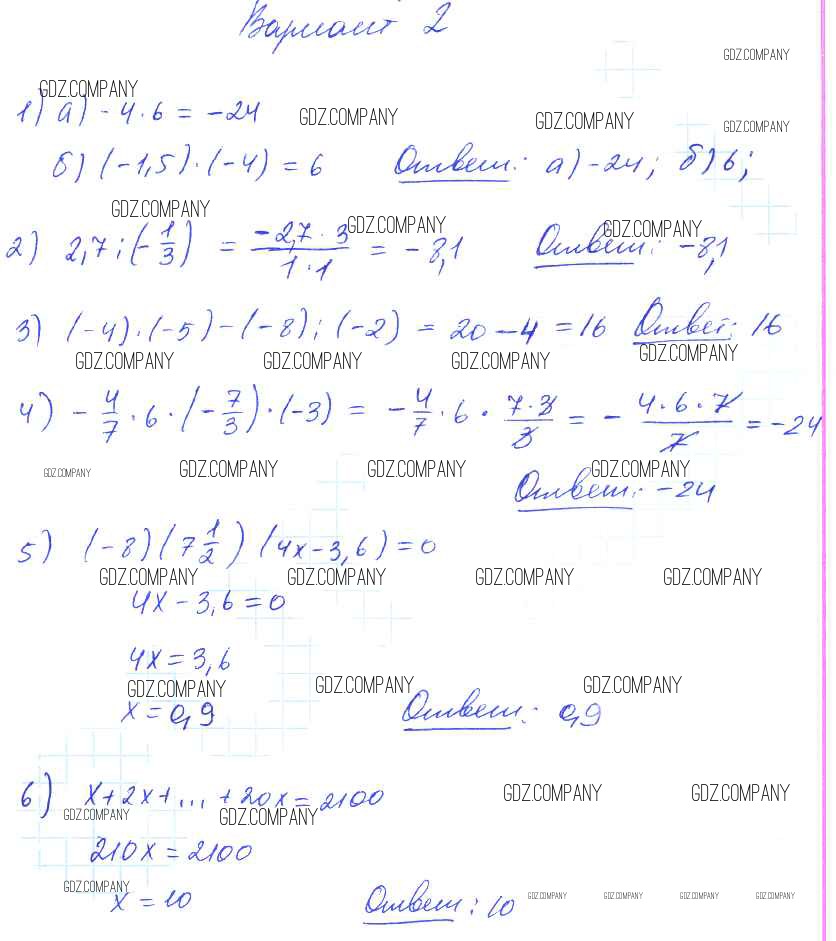 Вариант 2
GDZ.COMPANY
GDZ.COMPANY
1) а) - 4 · 6 = -24 GDZ.COMPANY GDZ.COMPANY GDZ.COMPANY
б) (-1,5) · (-4) = 6 Ответ: а) -24; б) 6;
GDZ.COMPANY GDZ.COMPANY GDZ.COMPANY
2) 2,7 : (- 1/3) = -2,7 · 3 / 1 · 1 = - 8,1 Ответ: -8,1
3) (-4) · (-5) - (-8) : (-2) = 20 - 4 = 16 Ответ: 16
GDZ.COMPANY GDZ.COMPANY GDZ.COMPANY GDZ.COMPANY
4) - 4/7 · 6 · (- 7/3) · (-3) = - 4/7 · 6 · 7 · 3 / 3 = - 4 · 6 · 7 / 7 = -24
GDZ.COMPANY GDZ.COMPANY GDZ.COMPANY GDZ.COMPANY
Ответ: -24
5) (-8) (7 1/2) (4x - 3,6) = 0
GDZ.COMPANY GDZ.COMPANY GDZ.COMPANY GDZ.COMPANY
4x - 3,6 = 0
4x = 3,6
GDZ.COMPANY GDZ.COMPANY GDZ.COMPANY
x = 0,9 Ответ: 0,9
6) x + 2x + ... + 20x = 2100 GDZ.COMPANY GDZ.COMPANY
GDZ.COMPANY GDZ.COMPANY
210x = 2100
GDZ.COMPANY
x = 10 Ответ: 10 GDZ.COMPANY GDZ.COMPANY GDZ.COMPANY GDZ.COMPANY